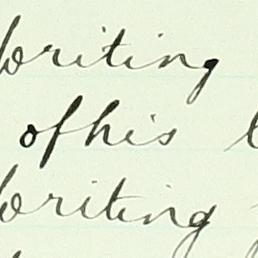 Writing
of his
Writing